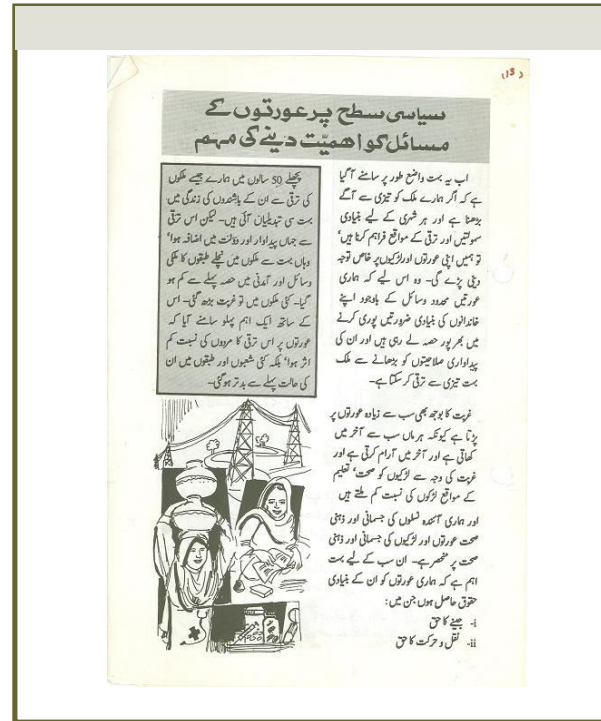 (13)
سیاسی سطح پر عورتوں کے
مسائل کو اھمیّت دینے کی مہم
اب یہ بہت واضع طور پر سامنے آگیا
ہے کہ اگر ہمارے ملک کو تیزی سے آگے
بڑھنا ہے اور ہر شہری کے لیے بنیادی
سہولتیں اور ترقی کے مواقع فراہم کرنا ہیں‘
تو ہمیں اپنی عورتوں اور لڑکیوں پر خاص توجہ
دینی پڑے گی۔ وہ اس لیے کہ ہماری
عورتیں محدود وسائل کے باوجود اپنے
خاندانوں کی بنیادی ضرورتیں پوری کرنے
میں بھرپور حصہ لے رہی ہیں اور ان کی
پیداواری صلاحیتوں کو بڑھانے سے ملک
بہت تیزی سے ترقی کر سکتا ہے۔
غربت کا بوجھ بھی سب سے زیادہ عورتوں پر
پڑتا ہے کیونکہ ہر ماں سب سے آخر میں
کھاتی ہے اور آخر میں آرام کرتی ہے اور
غربت کی وجہ سے لڑکیوں کو صحت‘ تعلیم
کے مواقع لڑکوں کی نسبت کم ملتے ہیں
اور ہماری آئندہ نسلوں کی جسمانی اور ذہنی
صحت عورتوں اور لڑکیوں کی جسمانی اور ذہنی
صحت پر منحصر ہے۔ ان سب کے لیے بہت
اہم ہے کہ ہماری عورتوں کو ان کے بنیادی
حقوق حاصل ہوں جن میں:
i- جینے کا حق
ii- نقل و حرکت کا حق
پچھلے 50 سالوں میں ہمارے جیسے ملکوں
کی ترقی سے ان کے باشندوں کی زندگی میں
بہت سی تبدیلیاں آئی ہیں۔ لیکن اس ترقی
سے جہاں پیداوار اور دولت میں اضافہ ہوا‘
وہاں بہت سے ملکوں میں نچلے طبقوں کا ملکی
وسائل اور آمدنی میں حصہ پہلے سے کم ہو
گیا۔ کئی ملکوں میں تو غربت بڑھ گئی۔ اس
کے ساتھ ایک اہم پہلو سامنے آیا کہ
عورتوں پر اس ترقی کا مردوں کی نسبت کم
اثر ہوا‘ بلکہ کئی شعبوں اور طبقوں میں ان
کی حالت پہلے سے بدتر ہوگئی۔